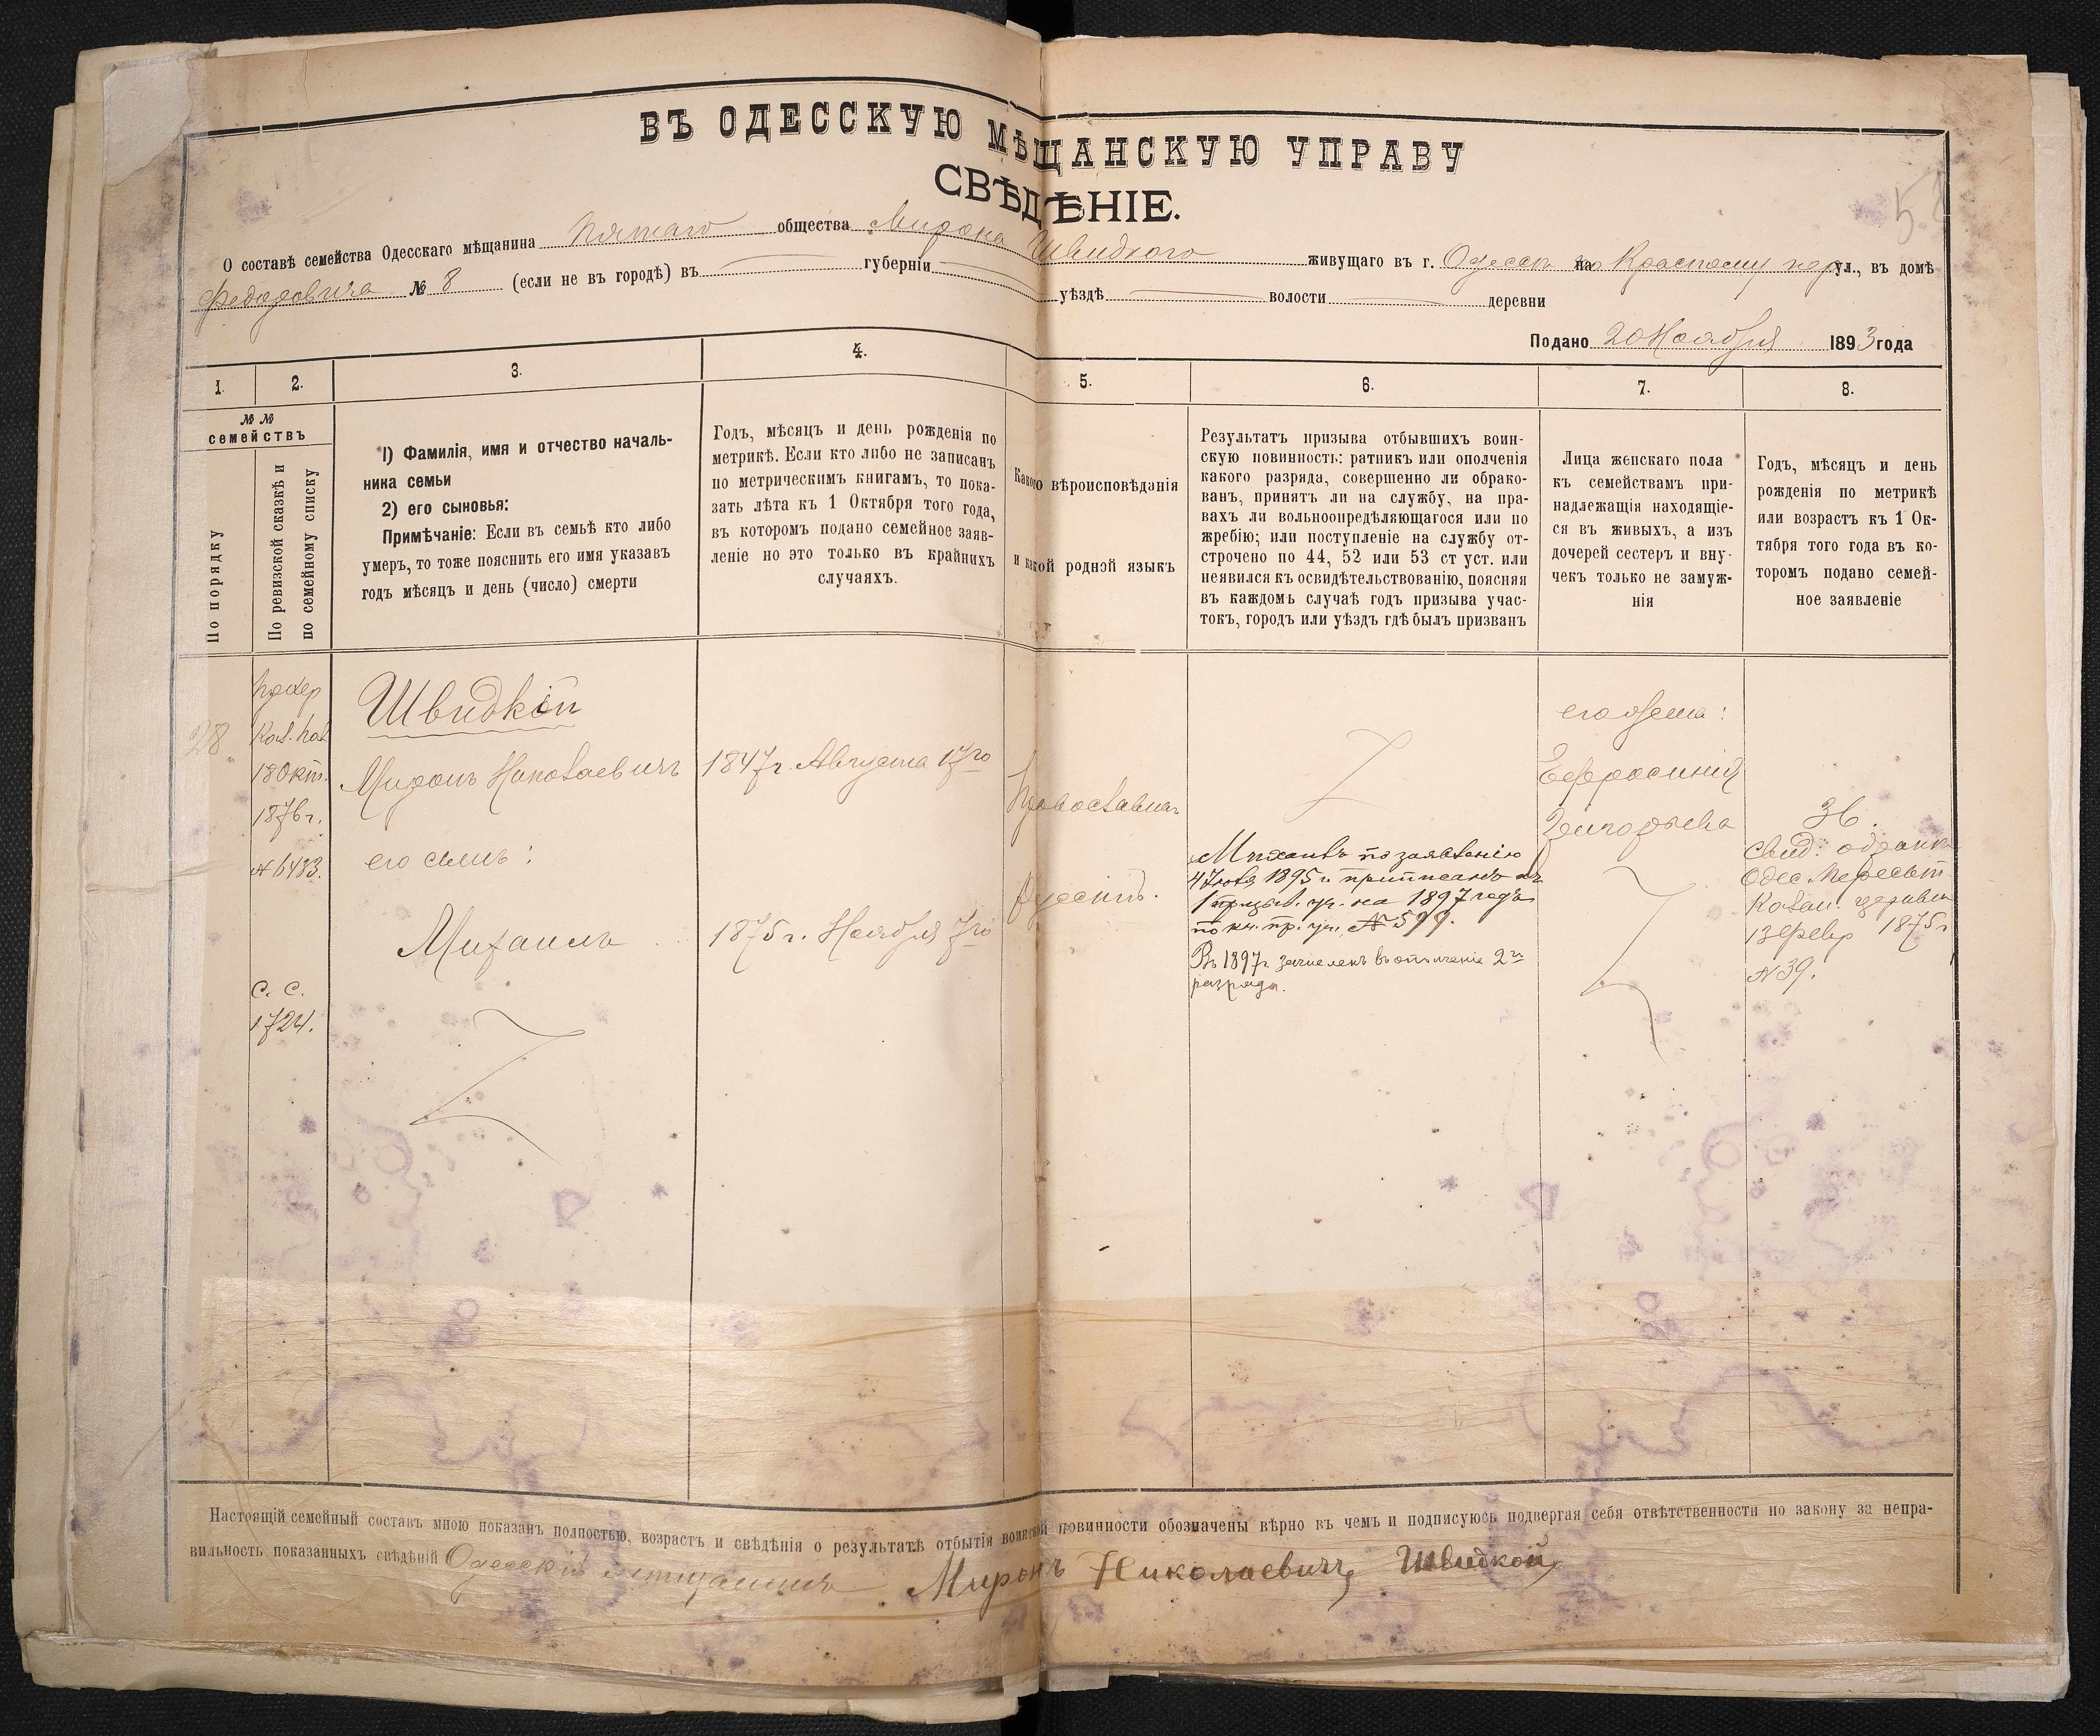 ВЪ ОДЕССКУЮ МѢЩАНСКУЮ УПРАВУ
СВѢДѢНІЕ.
О составѣ семейства Одесскаго мѣщанина Пятаго общества Мирона Швидкого живущаго въ г. Одессѣ по Красному пер ул., въ домѣ
Федоровича № 8 (если не въ городѣ) въ губерніи уѣздѣ волости деревни
Подано 20 Ноября 1893 года
1. 2. 3. 4. 5. 6. 7. 8.
№ № семействъ
По порядку
По ревизской сказкѣ и
по семейному списку
1) Фамилія, имя и отчество началь-
ника семьи
2) его сыновья:
Примѣчаніе: Если въ семьѣ кто либо
умеръ, то тоже пояснить его имя указавъ
годъ мѣсяцъ и день (число) смерти
Годъ, мѣсяцъ и день рожденія по
метрикѣ. Если кто либо не записанъ
по метрическимъ книгамъ, то пока-
зать лѣта къ 1 Октября того года,
въ которомъ подано семейное заяв-
леніе но это только въ крайнихъ
случаяхъ.
Какого вѣроисповѣданія
и какой родной языкъ
Результатъ призыва отбывшихъ воин-
скую повинность: ратникъ или ополченія
какого разряда, совершенно ли обрако-
ванъ, принятъ ли на службу, на пра-
вахъ ли вольноопредѣляющагося или по
жребію; или поступленіе на службу от-
строчено по 44, 52 или 53 ст уст. или
неявился къ освидѣтельствованію, поясняя
въ каждомъ случаѣ годъ призыва учас-
токъ, городъ или уѣздъ гдѣ былъ призванъ
Лица женскаго пола
къ семействамъ при-
надлежащія находящіе-
ся въ живыхъ, а изъ
дочерей сестеръ и вну-
чекъ только не замуж-
нія
Годъ, мѣсяцъ и день
рожденія по метрикѣ
или возрастъ къ 1 Ок-
тября того года въ ко-
торомъ подано семей-
ное заявленіе
28
18 Окт.
1876 г.
№ 6433.
С. С.
1724.
Швидкій
Миронъ Николаевичъ
его сынъ:
Михаилъ
1847 г. Августа 17го
1875 г. Ноября 7го
Православнаг
Михаилъ по заявленію
4 Іюля 1895 г. приписанъ къ
1 призыв. уч. на 1897 годъ
по кн. пр. уч. № 599.
Въ 1897 г. зачисленъ въ ополченіе 2го
разряда.
его жена:
Ефросинія
Григорьева
36.
Свид. о бракѣ
Одес.
1875 г
№ 39.
Настоящій семейный составъ мною показанъ полностью, возрастъ и свѣдѣнія о результатѣ отбытія воинской повинности обозначены вѣрно въ чемъ и подписуюсь подвергая себя отвѣтственности по закону за непра-
вильность показанныхъ свѣдѣній Одесскій мѣщанинъ Миронъ Николаевичъ Швидкой